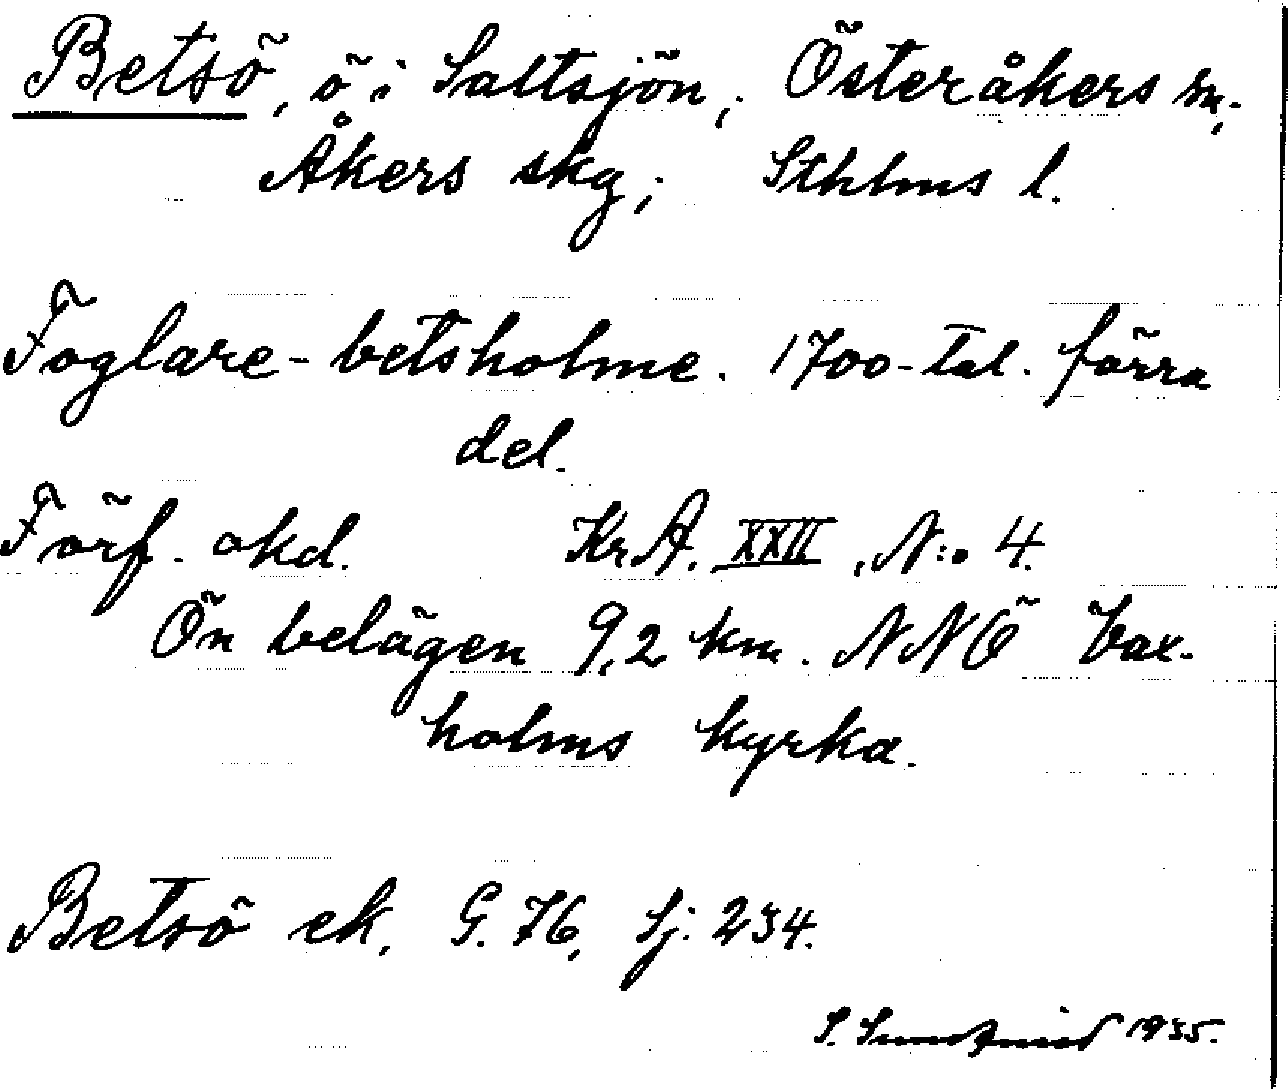 Betsö, ö i Saltsjön, Österåkers sn,
Åkers skg, Sthlms l.
Foglare-betsholme. 1700-tal. förra
del.
Förf. okd. Kr.A. XXII, N:o 4.
Ön belägen 9,2 km. NNÖ Vax-
holms kyrka.
Betsö ek. G. 76, Sj: 234.
S. Sundqvist 1935.